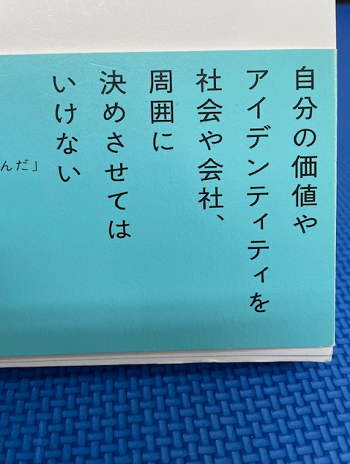 自分の価値や
アイデンティティを
社会や会社、
周囲に
決めさせては
いけない
んだ」